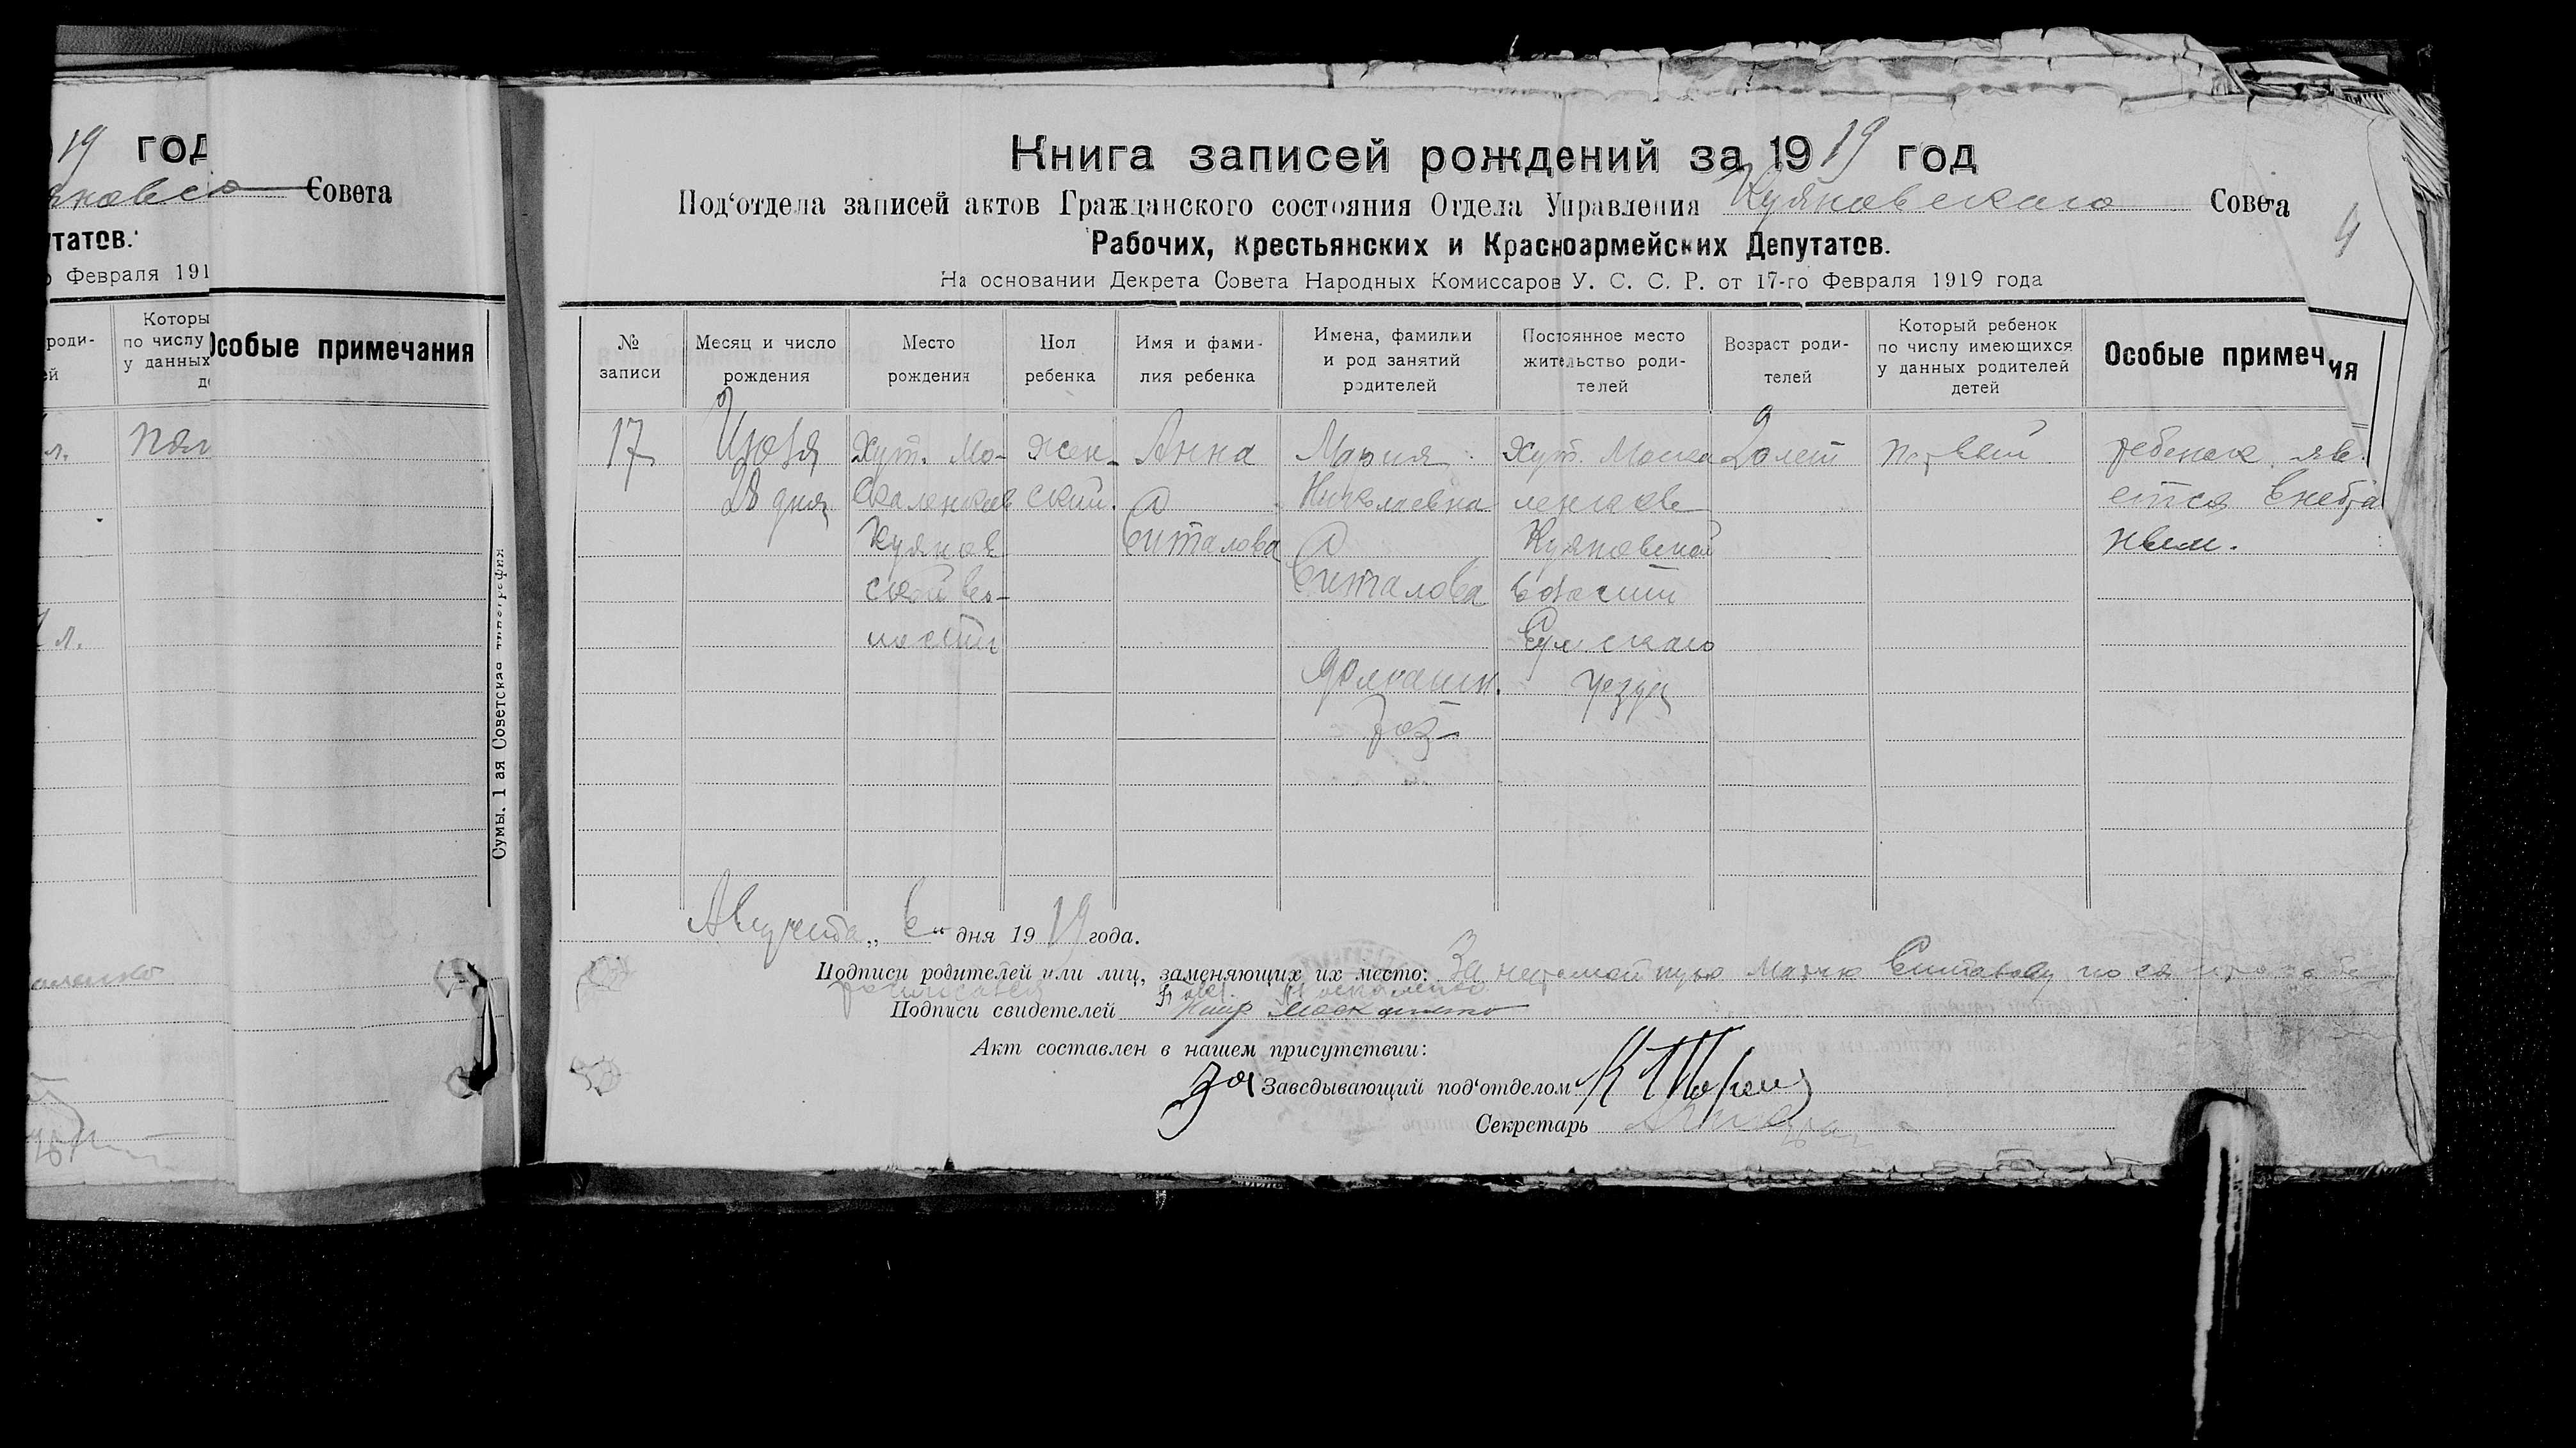 19 год
Совета
татов.
Февраля 191
роди-
ей
Которы
по числу
у данных
Особые примечания
л.
л.
Сумы. 1 ая Советская типография
Книга записей рождений за 1919 год
Под‘отдела записей актов Гражданского состояния Отдела Управления Куяновского Совета
4
Рабочих, Крестьянских и Красноармейских Депутатов.
На основании Декрета Совета Народных Комиссаров У. С. С. Р. от 17-го Февраля 1919 года
№
записи
Месяц и число
рождения
Место
рождения
Пол
ребенка
Имя и фами-
лия ребенка
Имена, фамилии
и род занятий
родителей
Постоянное место
жительство роди-
телей
Возраст роди-
телей
Который ребенок
по числу имеющихся
у данных родителей
детей
Особые примечния
17
Июля
28 дня
Хут. Мо-
скаленков
Куянов
ской во-
лости
Жен-
ский.
Анна
Ситалова
Мария
Николаевна
Ситалова
Хут. Моска
ленков
Куяновской
волости
Сумскаго
уезда
20 лет
первый
ребенок яв.
ется внебра
ным.
Августа „ 6 “ дня 1919 года.
Подписи родителей или лиц, заменяющих их место: За неграмотную Марию Ситалову по ея
росписался
Подписи свидетелей
Москаленко
Акт составлен в нашем присутствии:
За Заведывающий под‘отделом
Секретарь